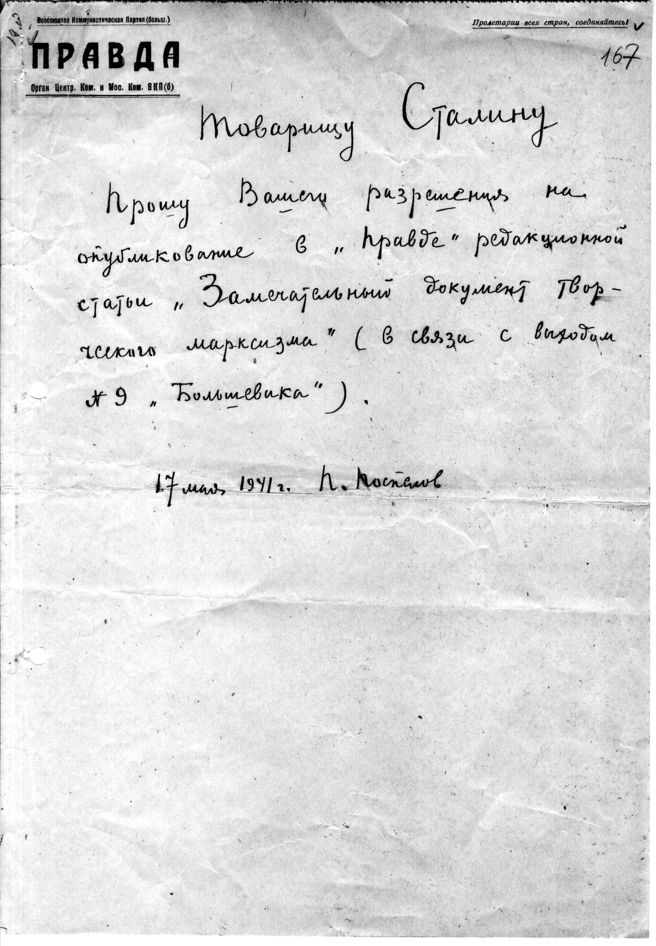 Всесоюзная Коммунистическая Партия (больш.)
Пролетарии всех стран, соединяйтесь!
ПРАВДА
167
Орган Центр. Ком. и Мос. Ком. ВКП(б)
Товарищу Сталину
Прошу Вашего разрешения на
опубликование в „Правде" редакционной
статьи „Замечательный документ твор-
ческого марксизма" (в связи с выходом
№ 9 „Большевика").
17 мая 1941 г. П. Поспелов